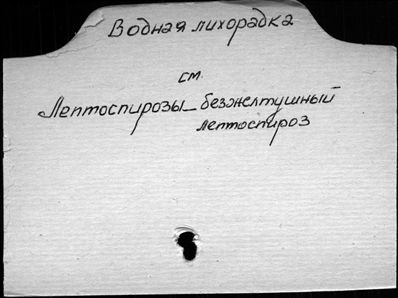 Водная лихорадка
см.
Лептоспирозы - безжелтушный
лептоспироз